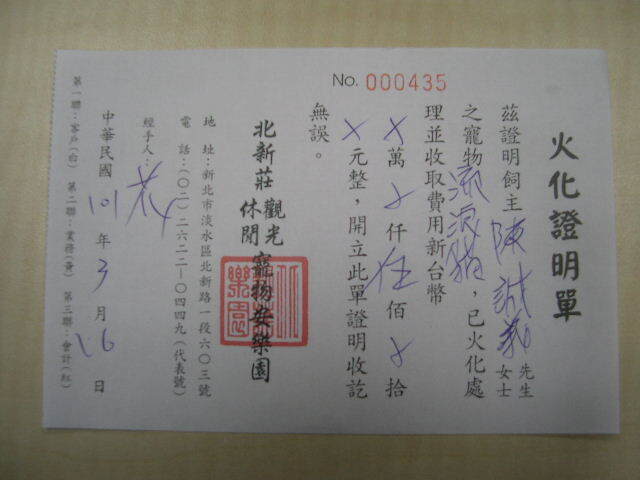 No. 000435
火化證明單
茲證明飼主陳誠義先生女士
之寵物流浪貓，已火化處
理並收取費用新台幣
X萬 仟伍佰 拾
X元整，開立此單證明收訖
無誤。
北新莊觀光休閒寵物安樂園
地 址：新北市淡水區北新路一段六〇三號
電 話：(〇二)二六二二－〇四四九(代表號)
經手人：
中華民國101年3月16日
第一聯：客戶(白) 第二聯：業務(黃) 第三聯：會計(紅)